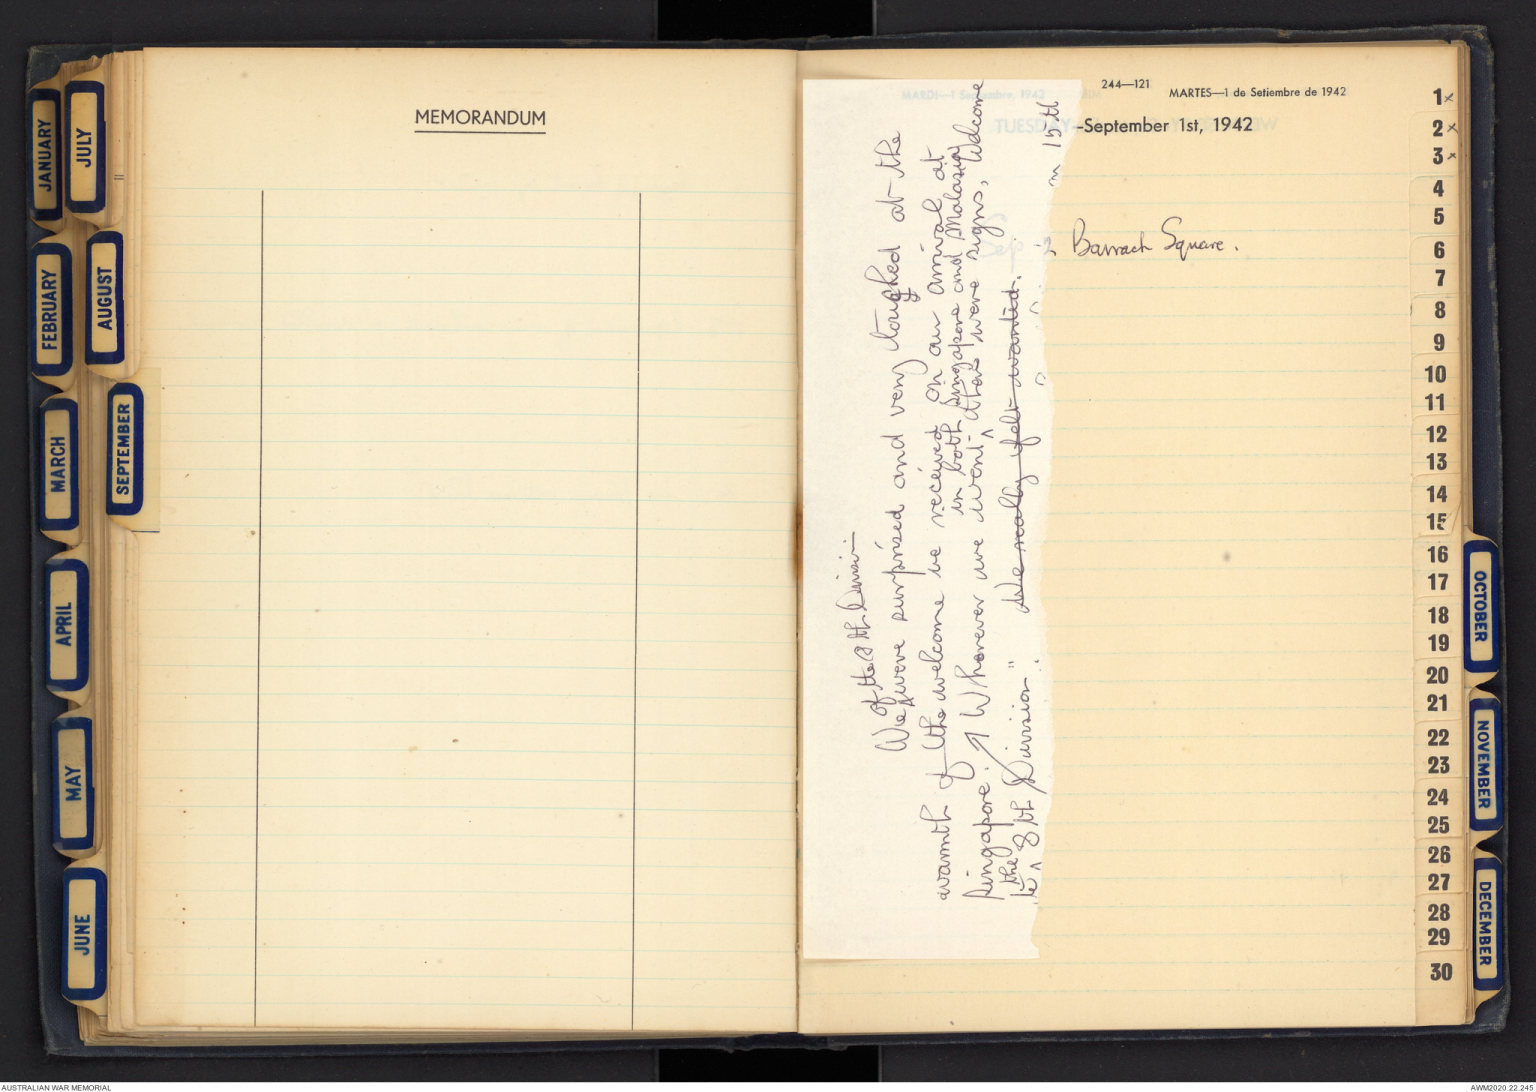 MEMORANDUM
JANUARY
FEBRUARY
MARCH
APRIL
MAY
JUNE
JULY
AUGUST
SEPTEMBER
of the 8th Division
We were surprised and very touched at the
warmth of the welcome we received on our arrival at
in both Singapore and Malasia
Singapore. Wherever we went ^ there were signs, Welcome
the
"to ^ 8th Division" We really felt wanted.
15th
244—121
MARTES—1 de Setiembre de 1942
-September 1st, 1942
Sep 2 Barrack Square.
1x
2x
3x
4
5
6
7
8
9
10
11
12
13
14
15
16
17
18
19
20
21
22
23
24
25
26
27
28
29
30
OCTOBER
NOVEMBER
DECEMBER
AUSTRALIAN WAR MEMORIAL
AWM2020.22.245